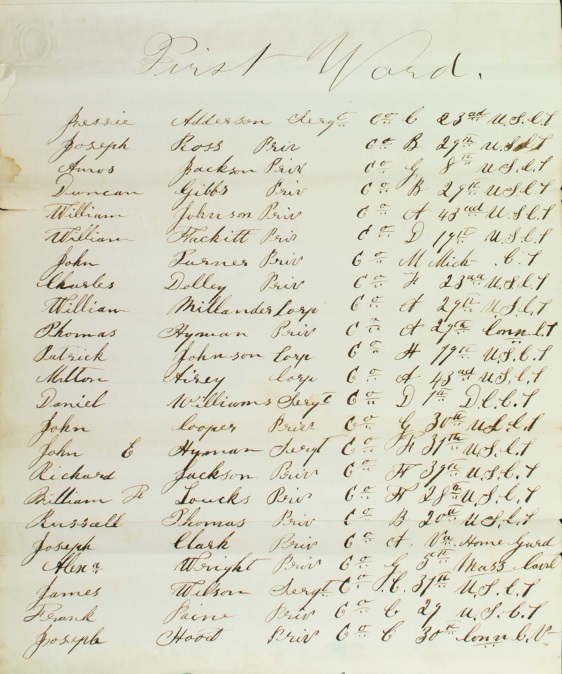 First Ward.
Jessie Adderson Sergt Co C 23rd U.S.C.T
Joseph Ross Priv Co B 29th U.S.C.T
Amos Jackson Priv Co G 8th U.S.C.T
Duncan Gibbs Priv Co B 29th U.S.C.T
William Johnson Priv Co A 43rd U.S.C.T
William Hackitt Priv Co D 19th U.S.C.T
John Turner Priv Co M Mich C.T
Charles Dolley Priv Co H 23rd U.S.C.T
William Millander Corp Co A 29th U.S.C.T
Thomas Hyman Priv Co A 29th Conn C.T
Patrick Johnson Corp Co H 19th U.S.C.T
Milton Airey Corp Co A 43rd U.S.C.T
Daniel Williams Sergt Co D 1st D.C.C.T
John Cooper Priv Co G 30th U.S.C.T
John E Hyman Sergt Co F 31th U.S.C.T
Richard Jackson Priv Co H 39th U.S.C.T
William H Loucks Priv Co H 28th U.S.C.T
Russall Thomas Priv Co B 20th U.S.C.T
Joseph Clark Priv Co A Va Home Gard
Alexr Wright Priv Co G 5th Mass Cavl
James Wilson Sergt Co C. 31th U.S.C.T
Frank Paine Priv Co C 29 U.S.C.T
Joseph Hoot Priv Co C 30th Conn C.V